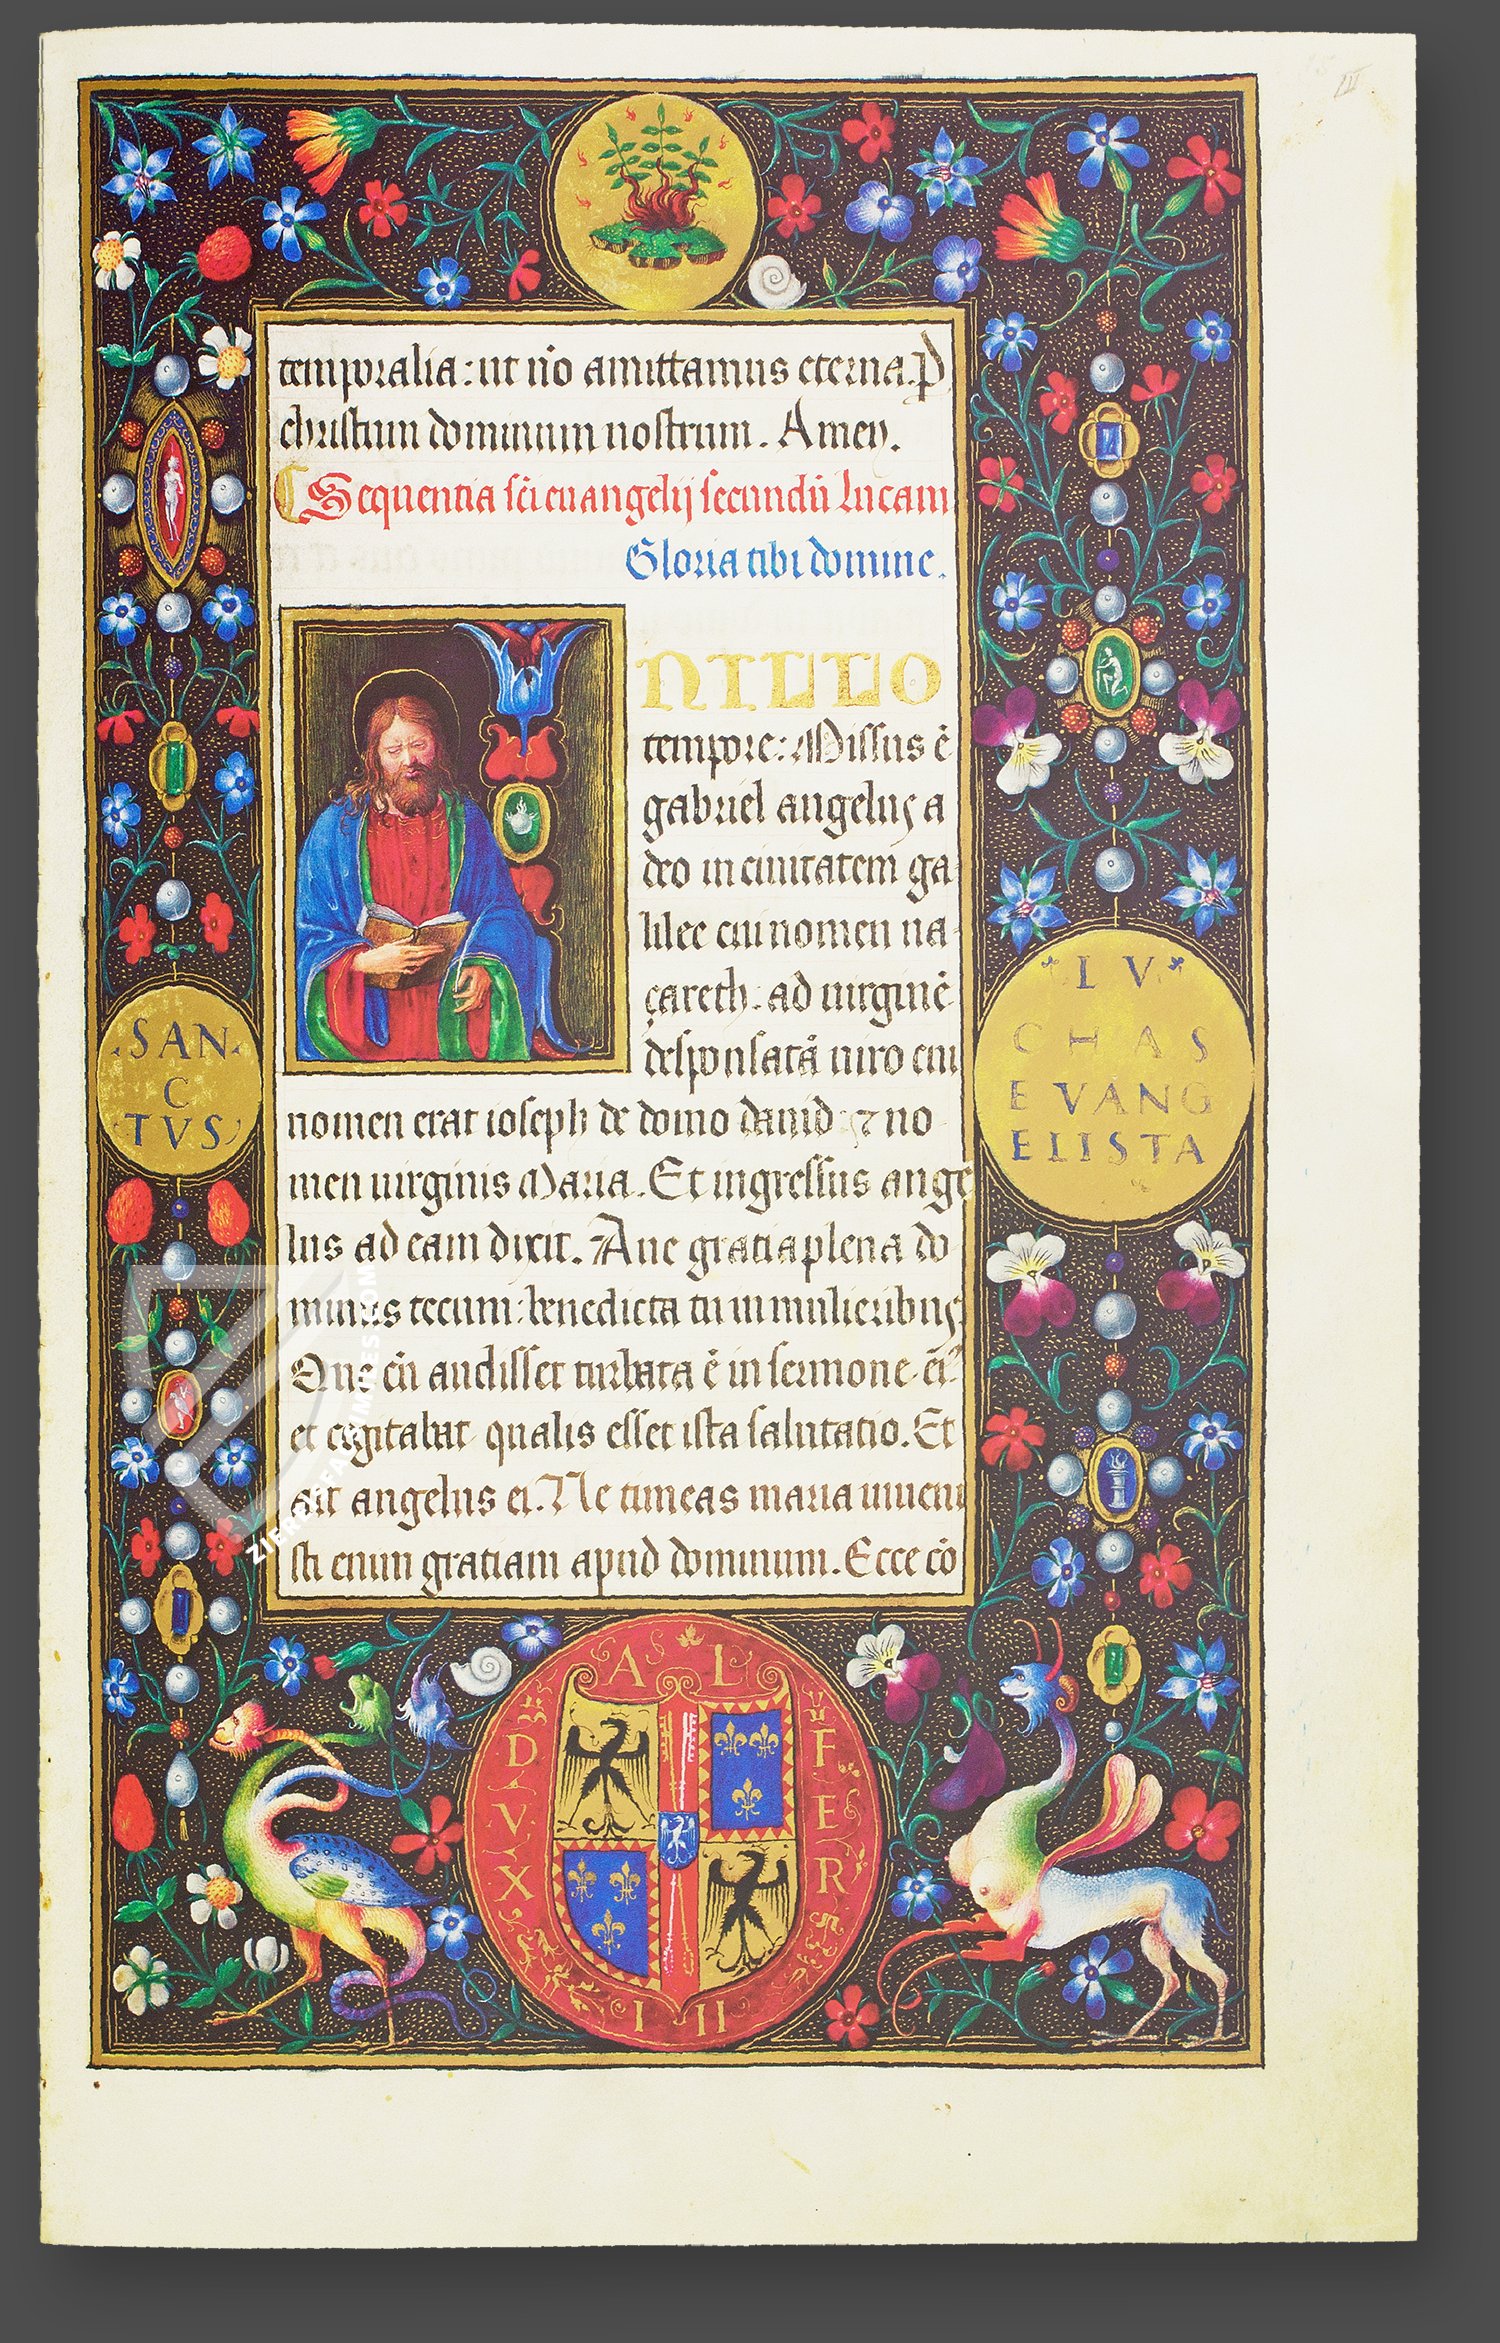 temporalia: ut nõ amittamus eterna. p̱
christum dominum nostrum. Amen.
Sequentia sc̃i euangelij secundũ Lucam
Gloria tibi domine.
N ILLO
tempore: Missus ẽ
gabriel angelus a
deo in ciuitatem ga
lilee cui nomen na
çareth: ad uirginẽ
desponsatã uiro cui
nomen erat ioseph de domo dauid: ⁊ no
men uirginis Maria. Et ingressus ange
lus ad eam dixit. Aue gratia plena do
minus tecum: benedicta tu in mulieribus
Que cũ audisset turbata ẽ in sermone ei⁹
et cogitabat qualis esset ista salutatio. Et
ait angelus ei. Ne timeas maria inueni
sti enim gratiam apud dominum. Ecce cõ
·SAN·
C
TVS
LV
CHAS
EVANG
ELISTA
AL FER
DVX
I II
ZIEREIS FACSIMILES.COM